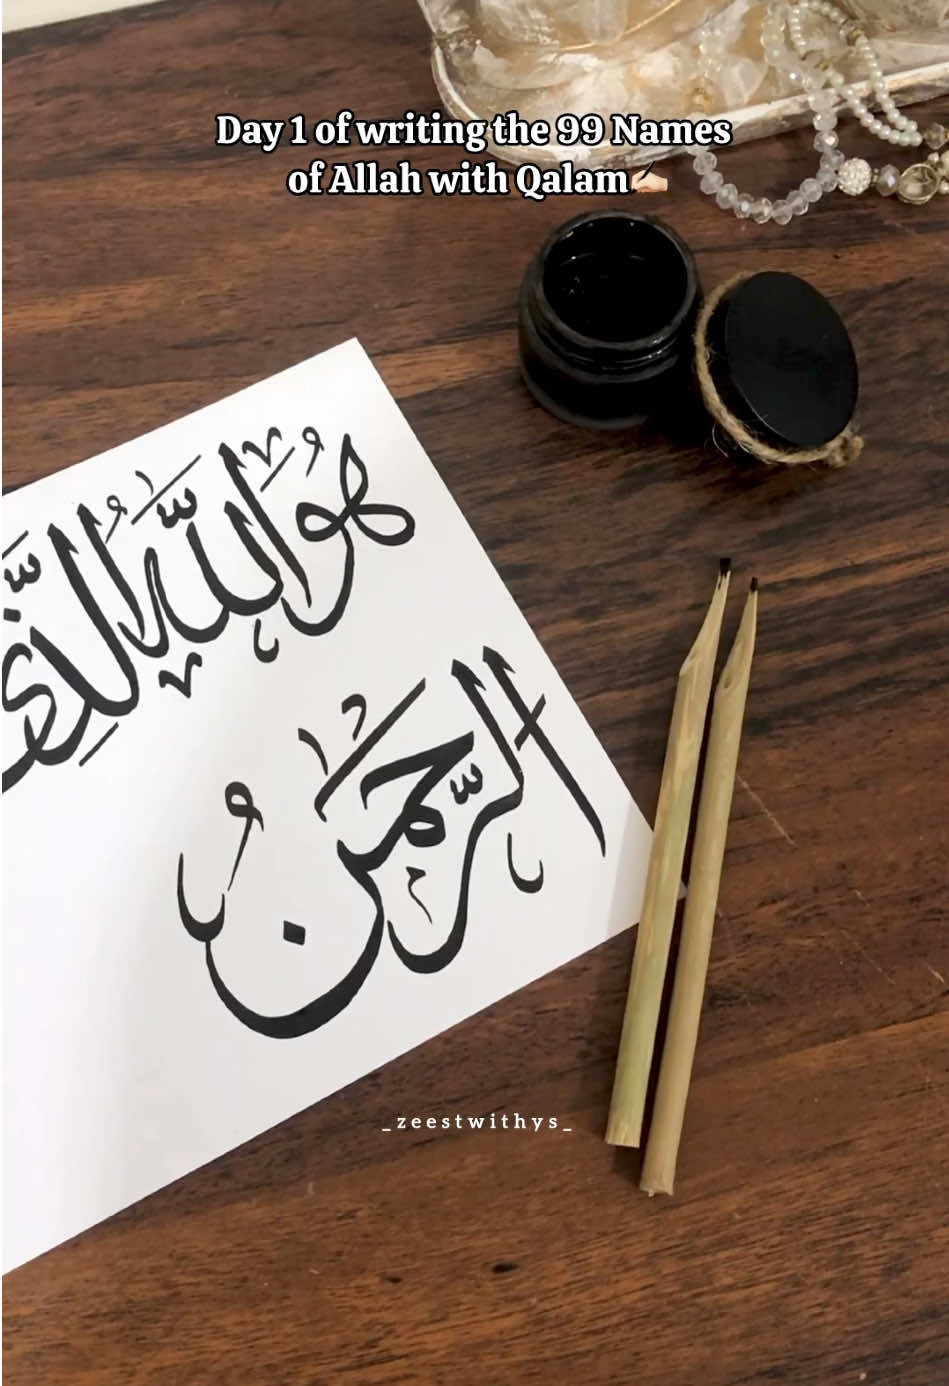 Day 1 of writing the 99 Names
of Allah with Qalam✍🏻
هُوَ اللّٰهُ الَّذِي
الرَّحْمٰنُ
_zeestwithys_